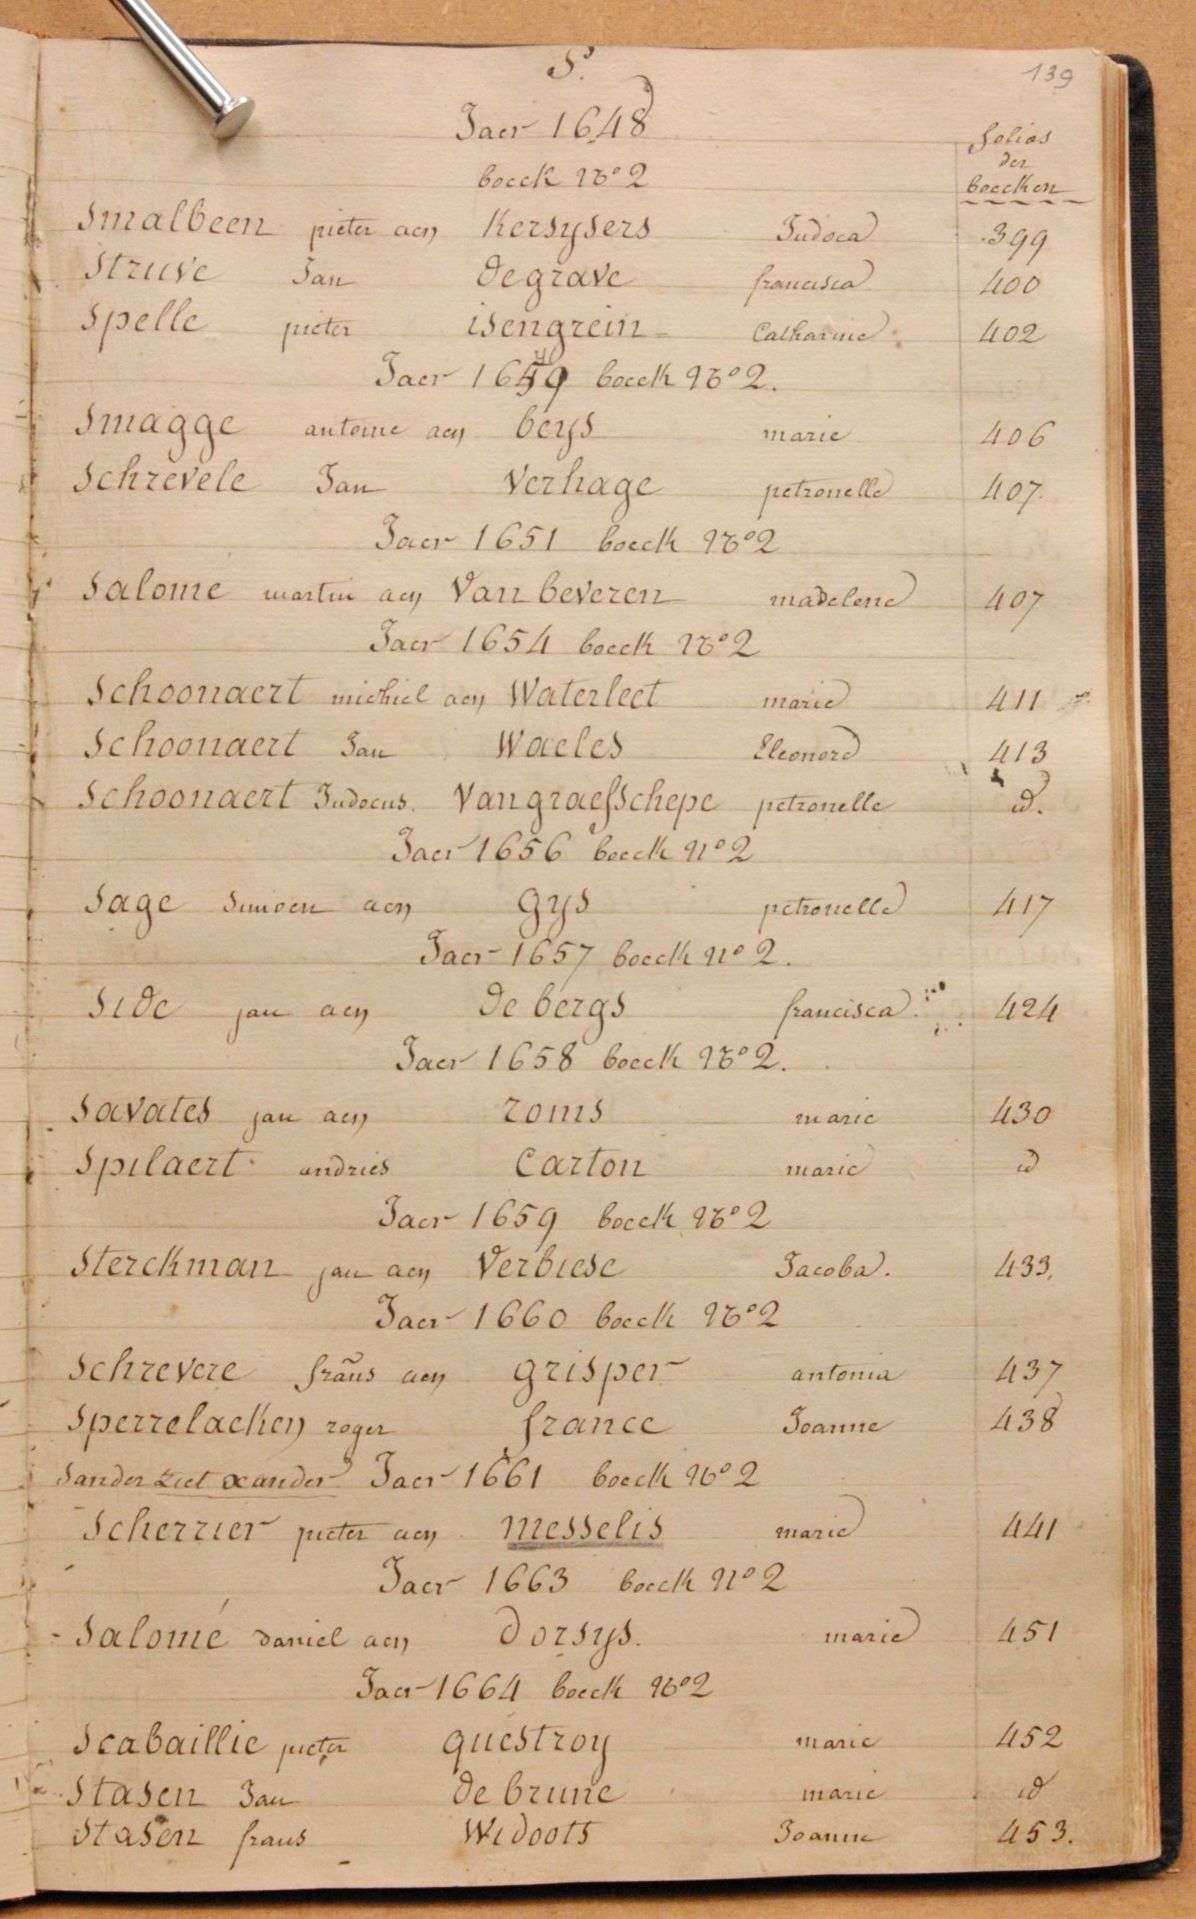 S.
139
Jaer 1648
folios
der
boecken
boeck No 2
Smalbeen pieter aen Kersysers Judoca 399
Struve Jan de grave francisca 400
Spelle pieter isengrein Catharine 402
Jaer 1649 boeck No 2.
Smagge antoine aen beys marie 406
Schrevele Jan Verhage petronelle 407
Jaer 1651 boeck No 2
Salome martin aen Van beveren madelene 407
Jaer 1654 boeck No 2
Schoonaert michiel aen Waterleet marie 411
Schoonaert Jan Waeles Eleonord 413
Schoonaert Judocus Van graefschepe petronelle id.
Jaer 1656 boeck No 2
Sage Simoen aen gys petronelle 417
Jaer 1657 boeck No 2.
Side jan aen de bergs francisca 424
Jaer 1658 boeck No 2.
Savates jan aen roms marie 430
Spilaert andries Carton marie id
Jaer 1659 boeck No 2
Sterckman jan aen Verbiese Jacoba. 433.
Jaer 1660 boeck No 2
Schrevere frans aen grisper antonia 437
Sperrelacken roger france Joanne 438
Sander ziet xander Jaer 1661 boeck No 2
Scherrier pieter aen messelis marie 441
Jaer 1663 boeck No 2
Salomé daniel aen dorsys. marie 451
Jaer 1664 boeck No 2
Scabaillie pieter questroy marie 452
Stasen Jan de brune marie id
Stasen frans Widoots Joanne 453.